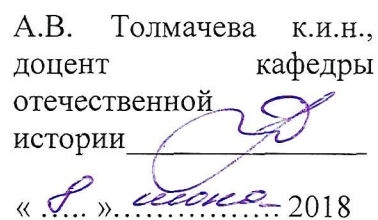 А.В. Толмачева к.и.н.,
доцент кафедры
отечественной
истории
« 8 » июня 2018